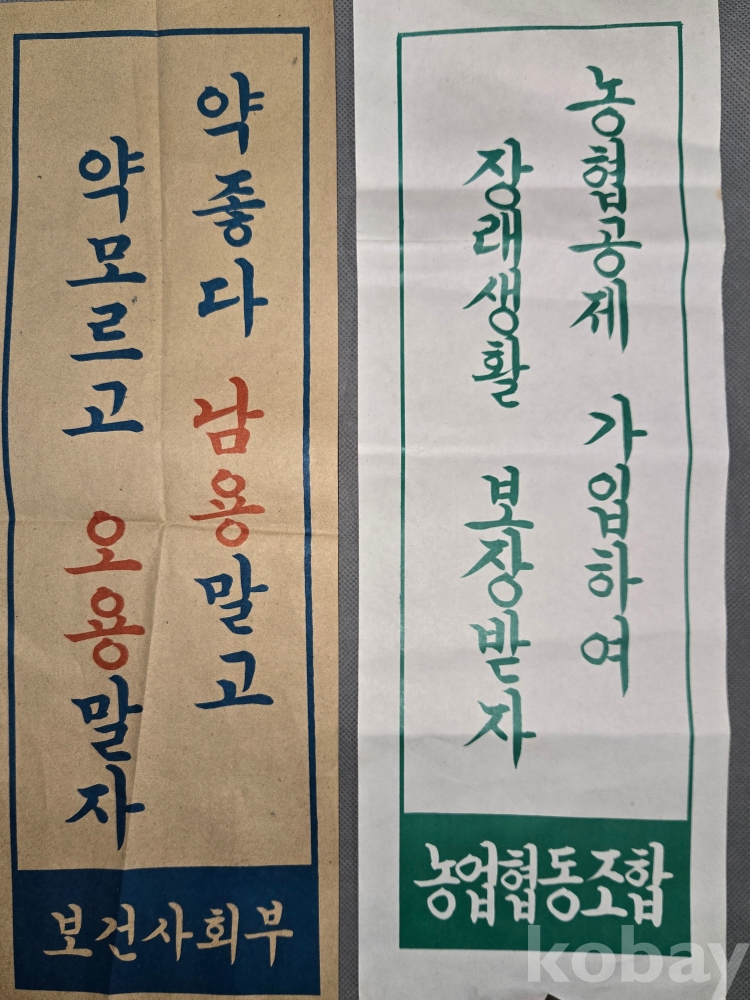 약좋다 남용말고
약모르고 오용말자
보건사회부
농협공제 가입하여
장래생활 보장받자
농업협동조합
kobay